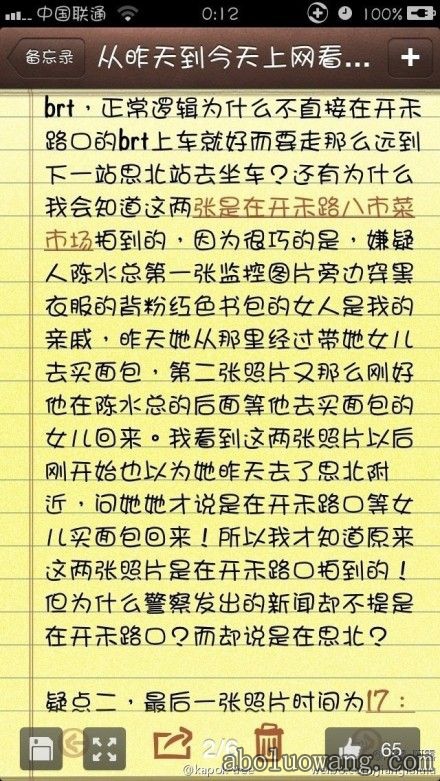 中国联通
0:12
100%
备忘录
从昨天到今天上网看...
brt，正常逻辑为什么不直接在开禾
路口的brt上车就好而要走那么远到
下一站思北站去坐车？还有为什么
我会知道这两张是在开禾路八市菜
市场拍到的，因为很巧的是，嫌疑
人陈水总第一张监控图片旁边穿黑
衣服的背粉红色书包的女人是我的
亲戚，昨天她从那里经过带她女儿
去买面包，第二张照片又那么刚好
他在陈水总的后面等他去买面包的
女儿回来。我看到这两张照片以后
刚开始也以为她昨天去了思北附
近，问她她才说是在开禾路口等女
儿买面包回来！所以我才知道原来
这两张照片是在开禾路口拍到的！
但为什么警察发出的新闻却不提是
在开禾路口？而却说是在思北？
疑点二，最后一张照片时间为17：
2/6
65
aboluowang.com